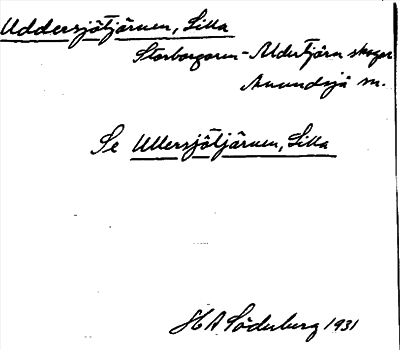 Uddersjötjärnen, Lilla
Storborgaren-Aldertjärn skogar
Anundsjö sn.
Se Ullersjötjärnen, Lilla
H A Söderberg 1931